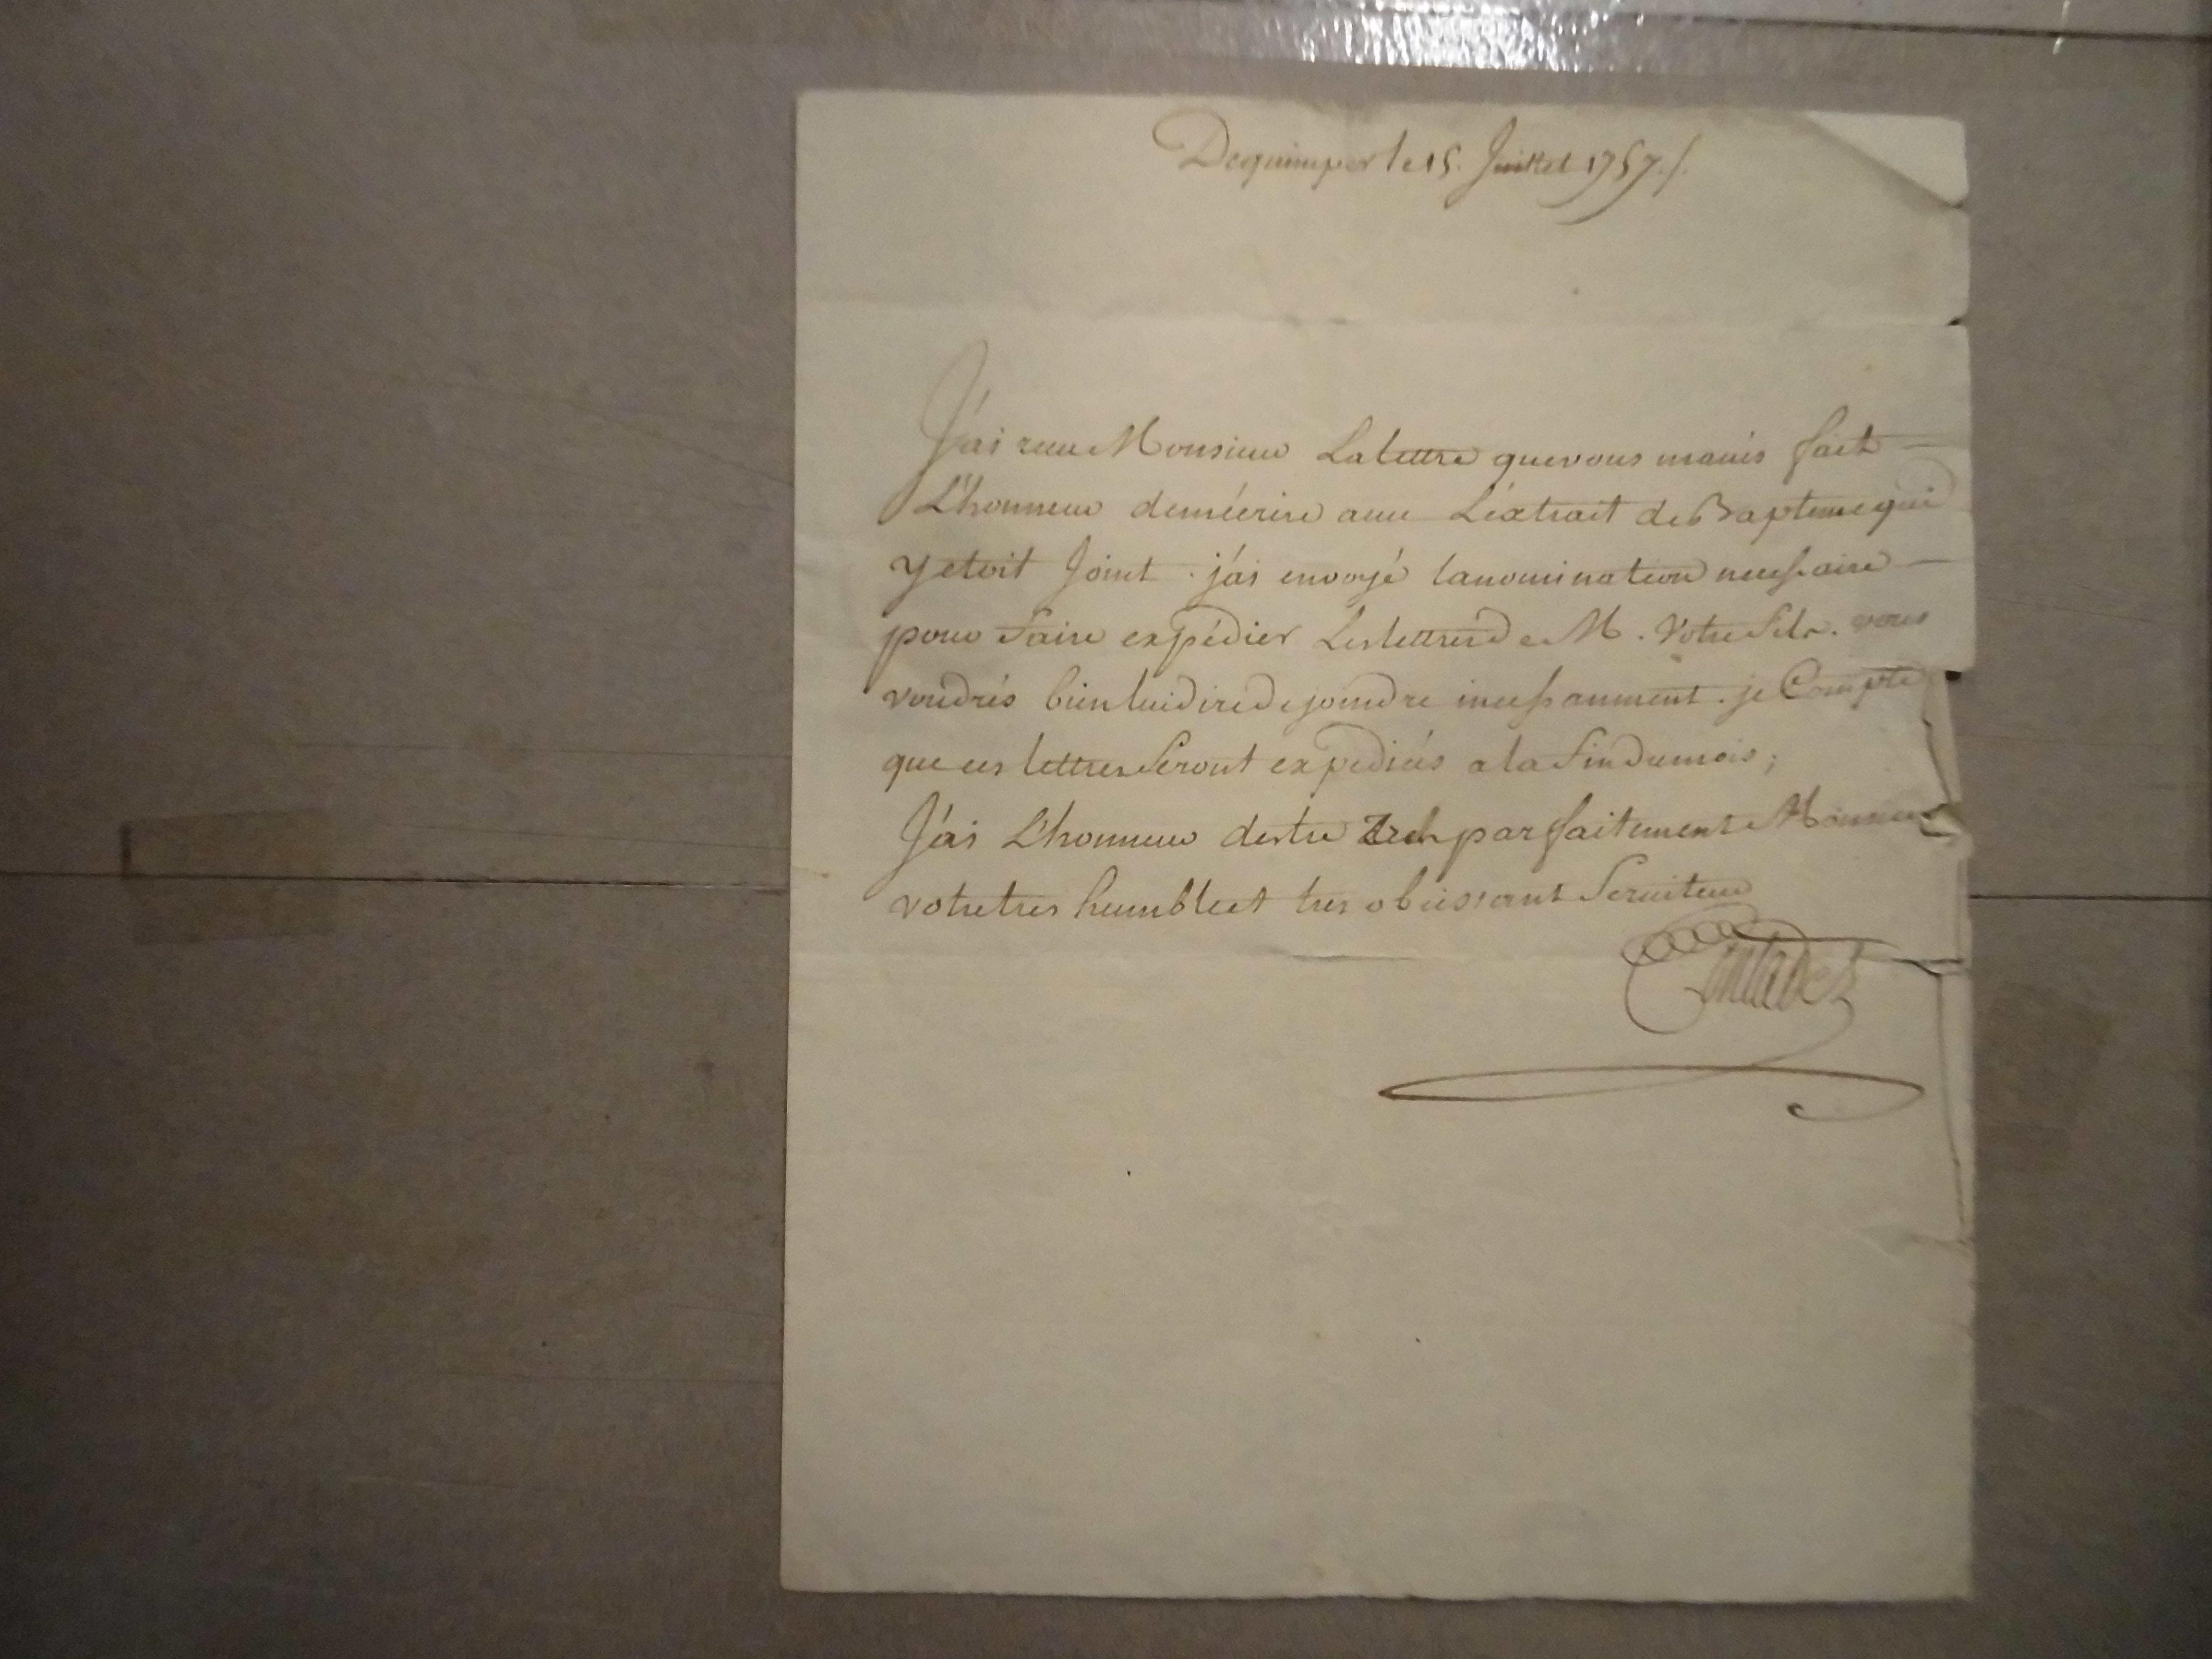 De quimper le 15. Juillet 1757./.
J'ai receu Monsieur La lettre que vous mavés fait
L'honneur de mécrire avec L'éxtrait de Bapteme qui
y etoit Joint . j'ái envoyé la nomination necessaire
pour faire expédier Les lettres de M. Votre fils. vous
voudrés bien lui dire de joindre incessamment. je Compte
que ces lettres seront expediées a la fin du mois;
J'ái L'honneur destre tres parfaitement Monsieur
votre tres humble et tres obeissant Serviteur
Contades